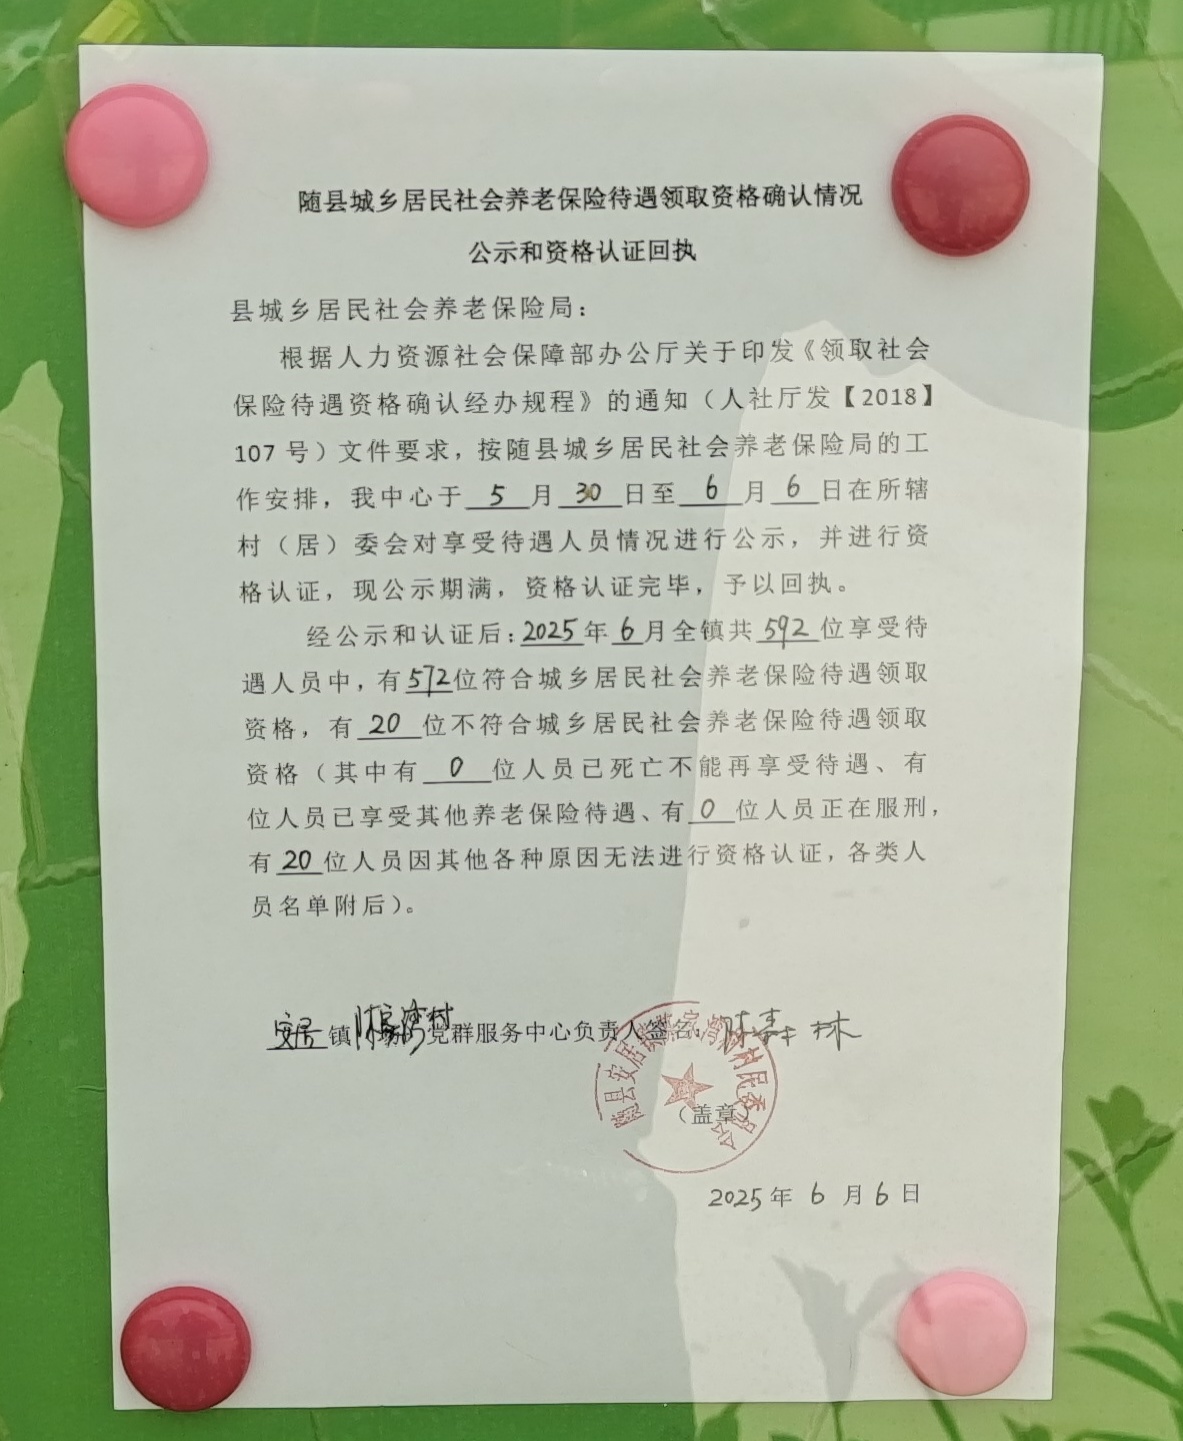 随县城乡居民社会养老保险待遇领取资格确认情况
公示和资格认证回执
县城乡居民社会养老保险局：
根据人力资源社会保障部办公厅关于印发《领取社会
保险待遇资格确认经办规程》的通知（人社厅发【2018】
107 号）文件要求，按随县城乡居民社会养老保险局的工
作安排，我中心于 5 月 30 日至 6 月 6 日在所辖
村（居）委会对享受待遇人员情况进行公示，并进行资
格认证，现公示期满，资格认证完毕，予以回执。
经公示和认证后：2025 年 6 月全镇共 592 位享受待
遇人员中，有 572 位符合城乡居民社会养老保险待遇领取
资格，有 20 位不符合城乡居民社会养老保险待遇领取
资格（其中有 0 位人员已死亡不能再享受待遇、有
位人员已享受其他养老保险待遇、有 0 位人员正在服刑，
有 20 位人员因其他各种原因无法进行资格认证，各类人
员名单附后）。
安居 镇 党群服务中心负责人签名：
随县安居镇 村民委员会
（盖章）
2025 年 6 月 6 日